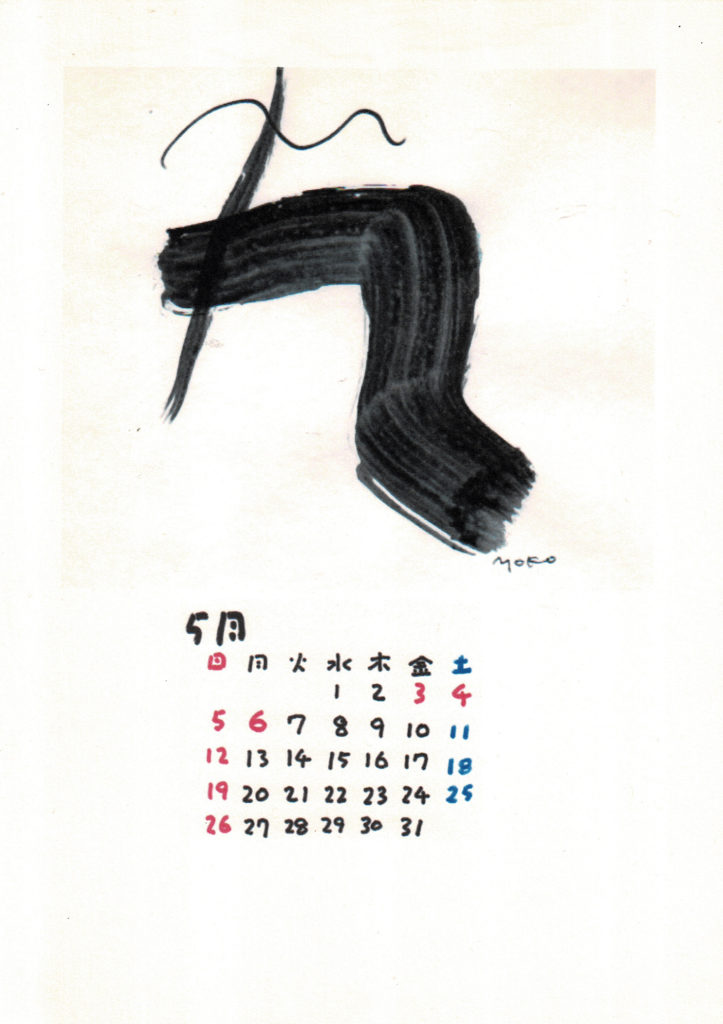 YOKO
5月
日 月 火 水 木 金 土
1 2 3 4
5 6 7 8 9 10 11
12 13 14 15 16 17 18
19 20 21 22 23 24 25
26 27 28 29 30 31